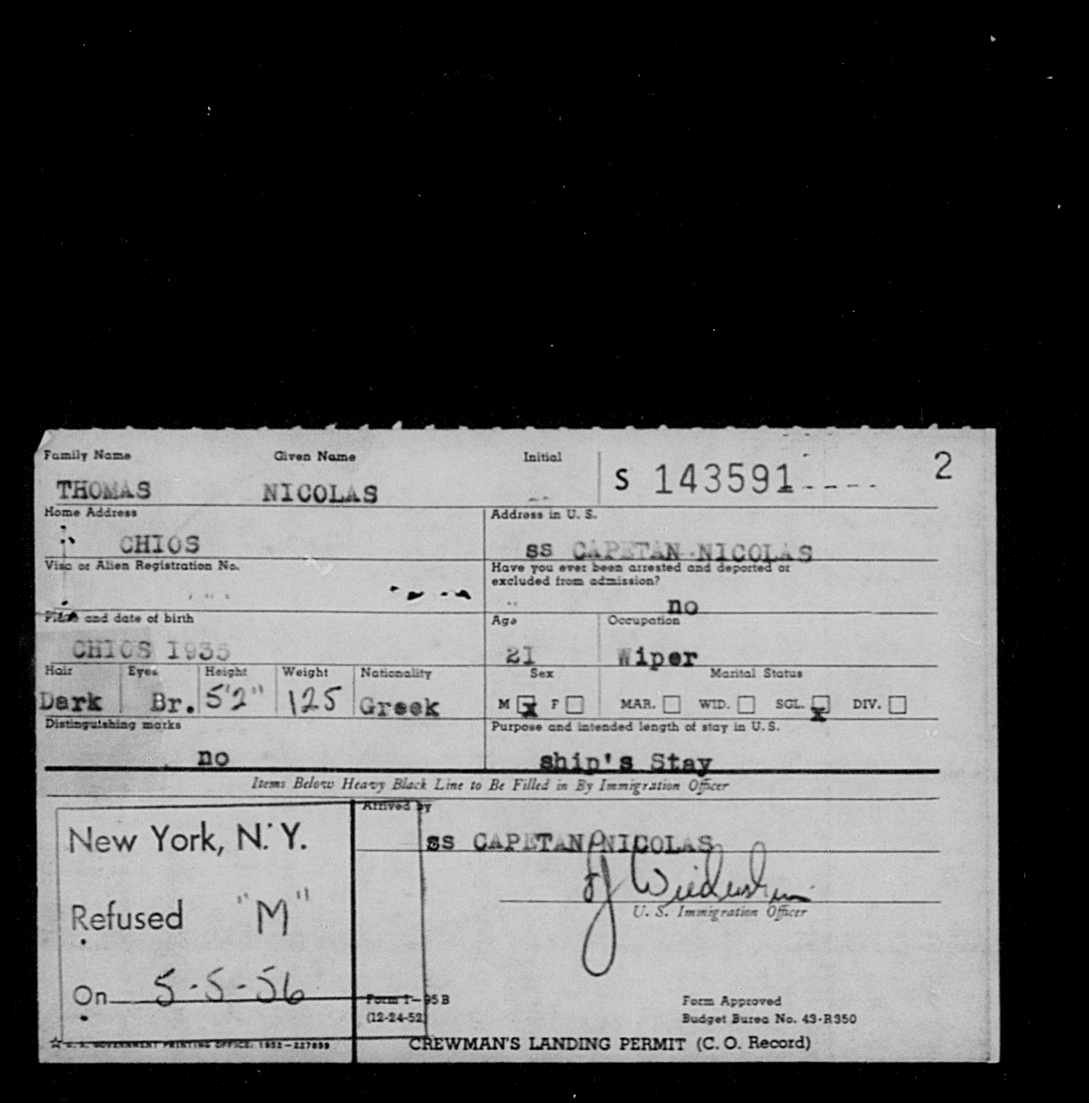 Family Name Given Name Initial S 143591 2
THOMAS NICOLAS
Home Address Address in U. S.
CHIOS ss CAPETAN NICOLAS
Visa or Alien Registration No. Have you ever been arrested and deported or
excluded from admission?
no
Place and date of birth Age Occupation
CHIOS 1935 21 Wiper
Hair Eyes Height Weight Nationality Sex Marital Status
Dark Br. 5'2" 125 Greek M F MAR. WID. SGL. DIV.
Distinguishing marks Purpose and intended length of stay in U.S.
no ship's Stay
Items Below Heavy Black Line to Be Filled in By Immigration Officer
Arrived by
New York, N.Y. ss CAPETAN NICOLAS
U. S. Immigration Officer
Refused "M"
On 5-5-56
Form I-95B Form Approved
(12-24-52) Budget Burea No. 43-R350
U. S. GOVERNMENT PRINTING OFFICE: 1952-227899 CREWMAN'S LANDING PERMIT (C. O. Record)